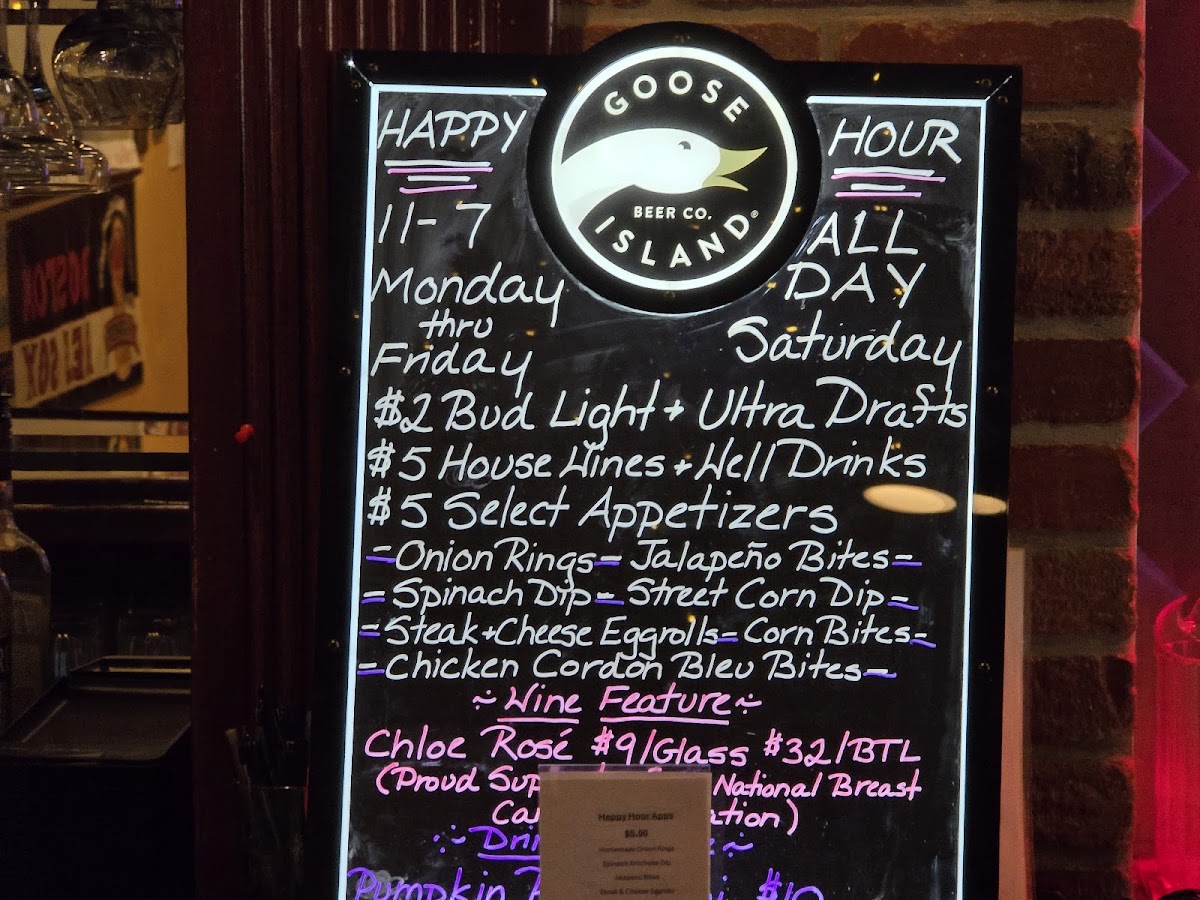 GOOSE
BEER CO.
ISLAND®
HAPPY HOUR
11-7
Monday
thru
Friday
ALL
DAY
Saturday
$2 Bud Light + Ultra Drafts
$5 House Wines + Well Drinks
$5 Select Appetizers
-Onion Rings- Jalapeño Bites-
-Spinach Dip- Street Corn Dip-
-Steak+Cheese Eggrolls- Corn Bites-
-Chicken Cordon Bleu Bites-
~Wine Feature~
Chloe Rosé $9/Glass $32/BTL
(Proud National Breast
Pumpkin $10
Happy Hour Apps
$5.00
Homemade Onion Rings
Spinach Artichoke Dip
Jalapeno Bites
Steak & Cheese Eggrolls